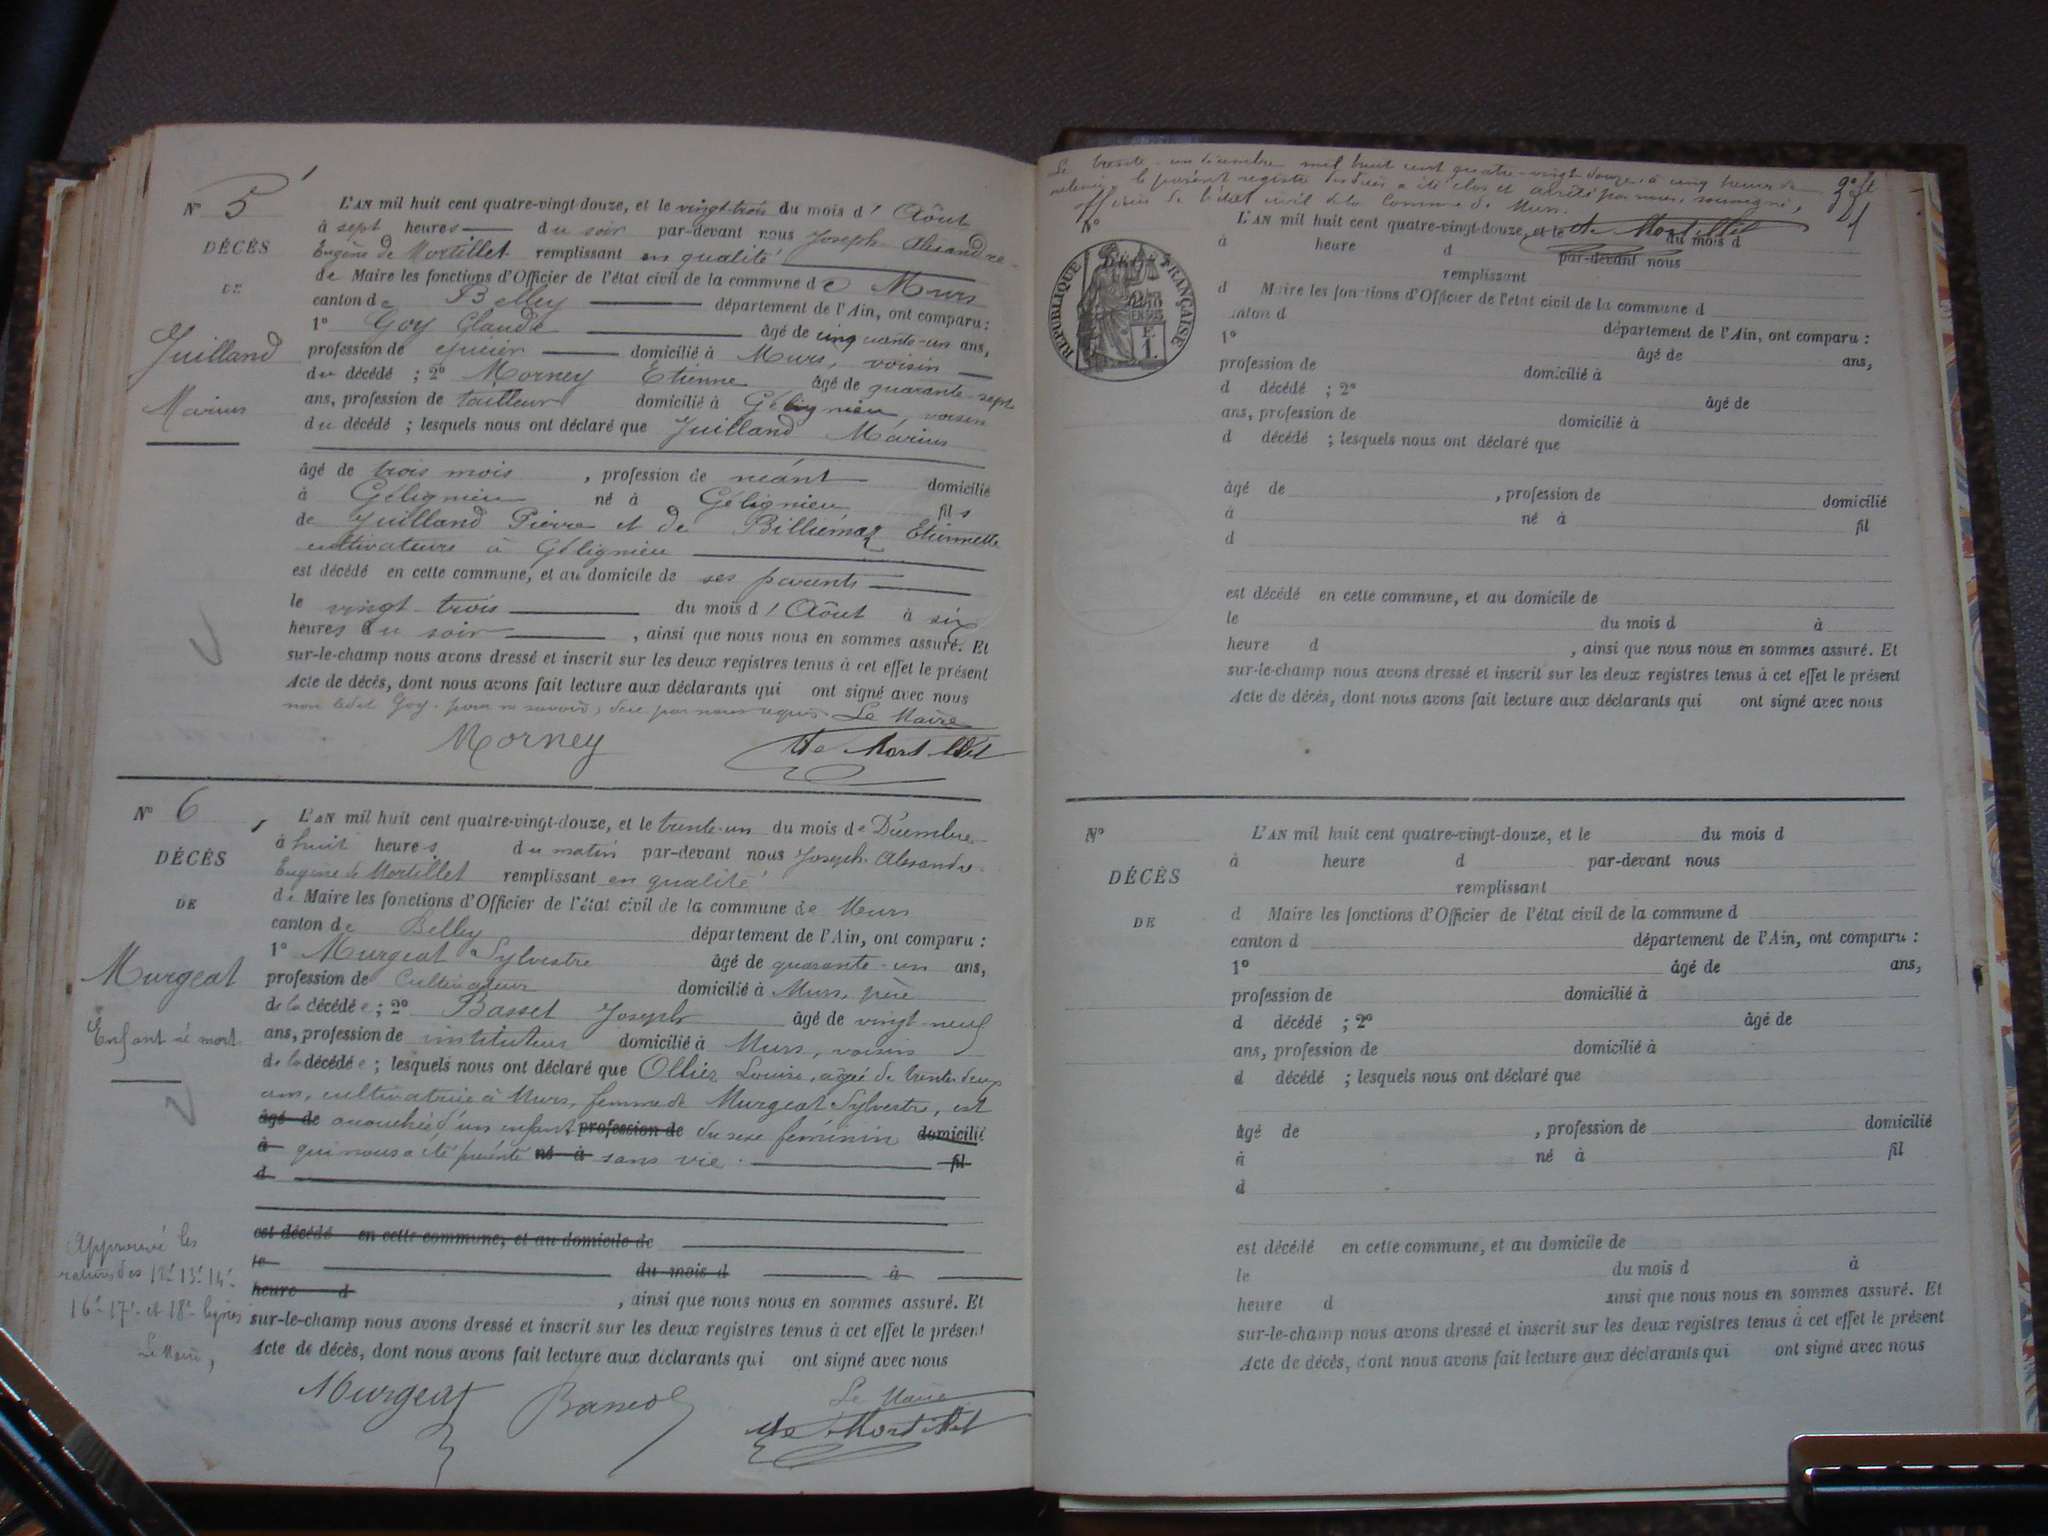 N° 5
DÉCÈS
DE
Juilland
Marius
L'AN mil huit cent quatre-vingt-douze, et le vingt-trois du mois d'Aôut
à sept heures du soir par-devant nous Joseph Alexandre
Eugène de Mortillet remplissant en qualité
de Maire les fonctions d'Officier de l'état civil de la commune de Murs
canton de Belley département de l'Ain, ont comparu :
1° Goy Claude âgé de cinquante-un ans,
profession de épicier domicilié à Murs, voisin
du décédé ; 2° Morney Etienne âgé de quarante-sept
ans, profession de tailleur domicilié à Gélignieu, voisin
du décédé ; lesquels nous ont déclaré que Juilland Marius
âgé de trois mois , profession de néant domicilié
à Gélignieu né à Gélignieu fils
de Juilland Pierre et de Billiemaz Etiennette
cultivateurs à Gélignieu
est décédé en cette commune, et au domicile de ses parents
le vingt-trois du mois d'Aôut à six
heures du soir , ainsi que nous nous en sommes assuré. Et
sur-le-champ nous avons dressé et inscrit sur les deux registres tenus à cet effet le présent
Acte de décès, dont nous avons fait lecture aux déclarants qui ont signé avec nous
non ledit Goy pour ne savoir, de ce par nous requis. Le Maire
Morney de Mortillet
N° 6
DÉCÈS
DE
Murgeat
Enfant né mort
L'AN mil huit cent quatre-vingt-douze, et le trente-un du mois de Décembre
à huit heures du matin par-devant nous Joseph Alexandre
Eugène de Mortillet remplissant en qualité
de Maire les fonctions d'Officier de l'état civil de la commune de Murs
canton de Belley département de l'Ain, ont comparu :
1° Murgeat Sylvestre âgé de quarante-un ans,
profession de Cultivateur domicilié à Murs, père
de la décédée ; 2° Basset Joseph âgé de vingt-neuf
ans, profession de instituteur domicilié à Murs, voisin
de la décédée ; lesquels nous ont déclaré que Ollier Louise, agée de trente-deux
ans, cultivatrice à Murs, femme de Murgeat Sylvestre, est
âgé de accouchée d'un enfant profession de du sexe féminin domicilié
à qui nous a été présenté né à sans vie. fil
d
est décédé en cette commune, et au domicile de
le du mois d à
heure d , ainsi que nous nous en sommes assuré. Et
sur-le-champ nous avons dressé et inscrit sur les deux registres tenus à cet effet le présent
Acte de décès, dont nous avons fait lecture aux déclarants qui ont signé avec nous
Approuvé les
ratures des 12e 13e 14e
16e 17e et 18e lignes
Le Maire,
Murgeat Basset Le Maire
de Mortillet
Le trente-un décembre mil huit cent quatre-vingt-douze, à cinq heures du
le présent registre des décès a été clos et arrêté par nous, soussigné,
officier de l'état civil de la Commune de Murs.
de Mortillet
N°
DÉCÈS
RÉPUBLIQUE FRANÇAISE
L'AN mil huit cent quatre-vingt-douze, et le du mois d
à heure d par-devant nous
remplissant
d Maire les fonctions d'Officier de l'état civil de la commune d
canton d département de l'Ain, ont comparu :
1° âgé de ans,
profession de domicilié à
d décédé ; 2° âgé de
ans, profession de domicilié à
d décédé ; lesquels nous ont déclaré que
âgé de , profession de domicilié
à né à fil
d
est décédé en cette commune, et au domicile de
le du mois d à
heure d , ainsi que nous nous en sommes assuré. Et
sur-le-champ nous avons dressé et inscrit sur les deux registres tenus à cet effet le présent
Acte de décès, dont nous avons fait lecture aux déclarants qui ont signé avec nous
N°
DÉCÈS
DE
L'AN mil huit cent quatre-vingt-douze, et le du mois d
à heure d par-devant nous
remplissant
d Maire les fonctions d'Officier de l'état civil de la commune d
canton d département de l'Ain, ont comparu :
1° âgé de ans,
profession de domicilié à
d décédé ; 2° âgé de
ans, profession de domicilié à
d décédé ; lesquels nous ont déclaré que
âgé de , profession de domicilié
à né à fil
d
est décédé en cette commune, et au domicile de
le du mois d à
heure d ainsi que nous nous en sommes assuré. Et
sur-le-champ nous avons dressé et inscrit sur les deux registres tenus à cet effet le présent
Acte de décès, dont nous avons fait lecture aux déclarants qui ont signé avec nous